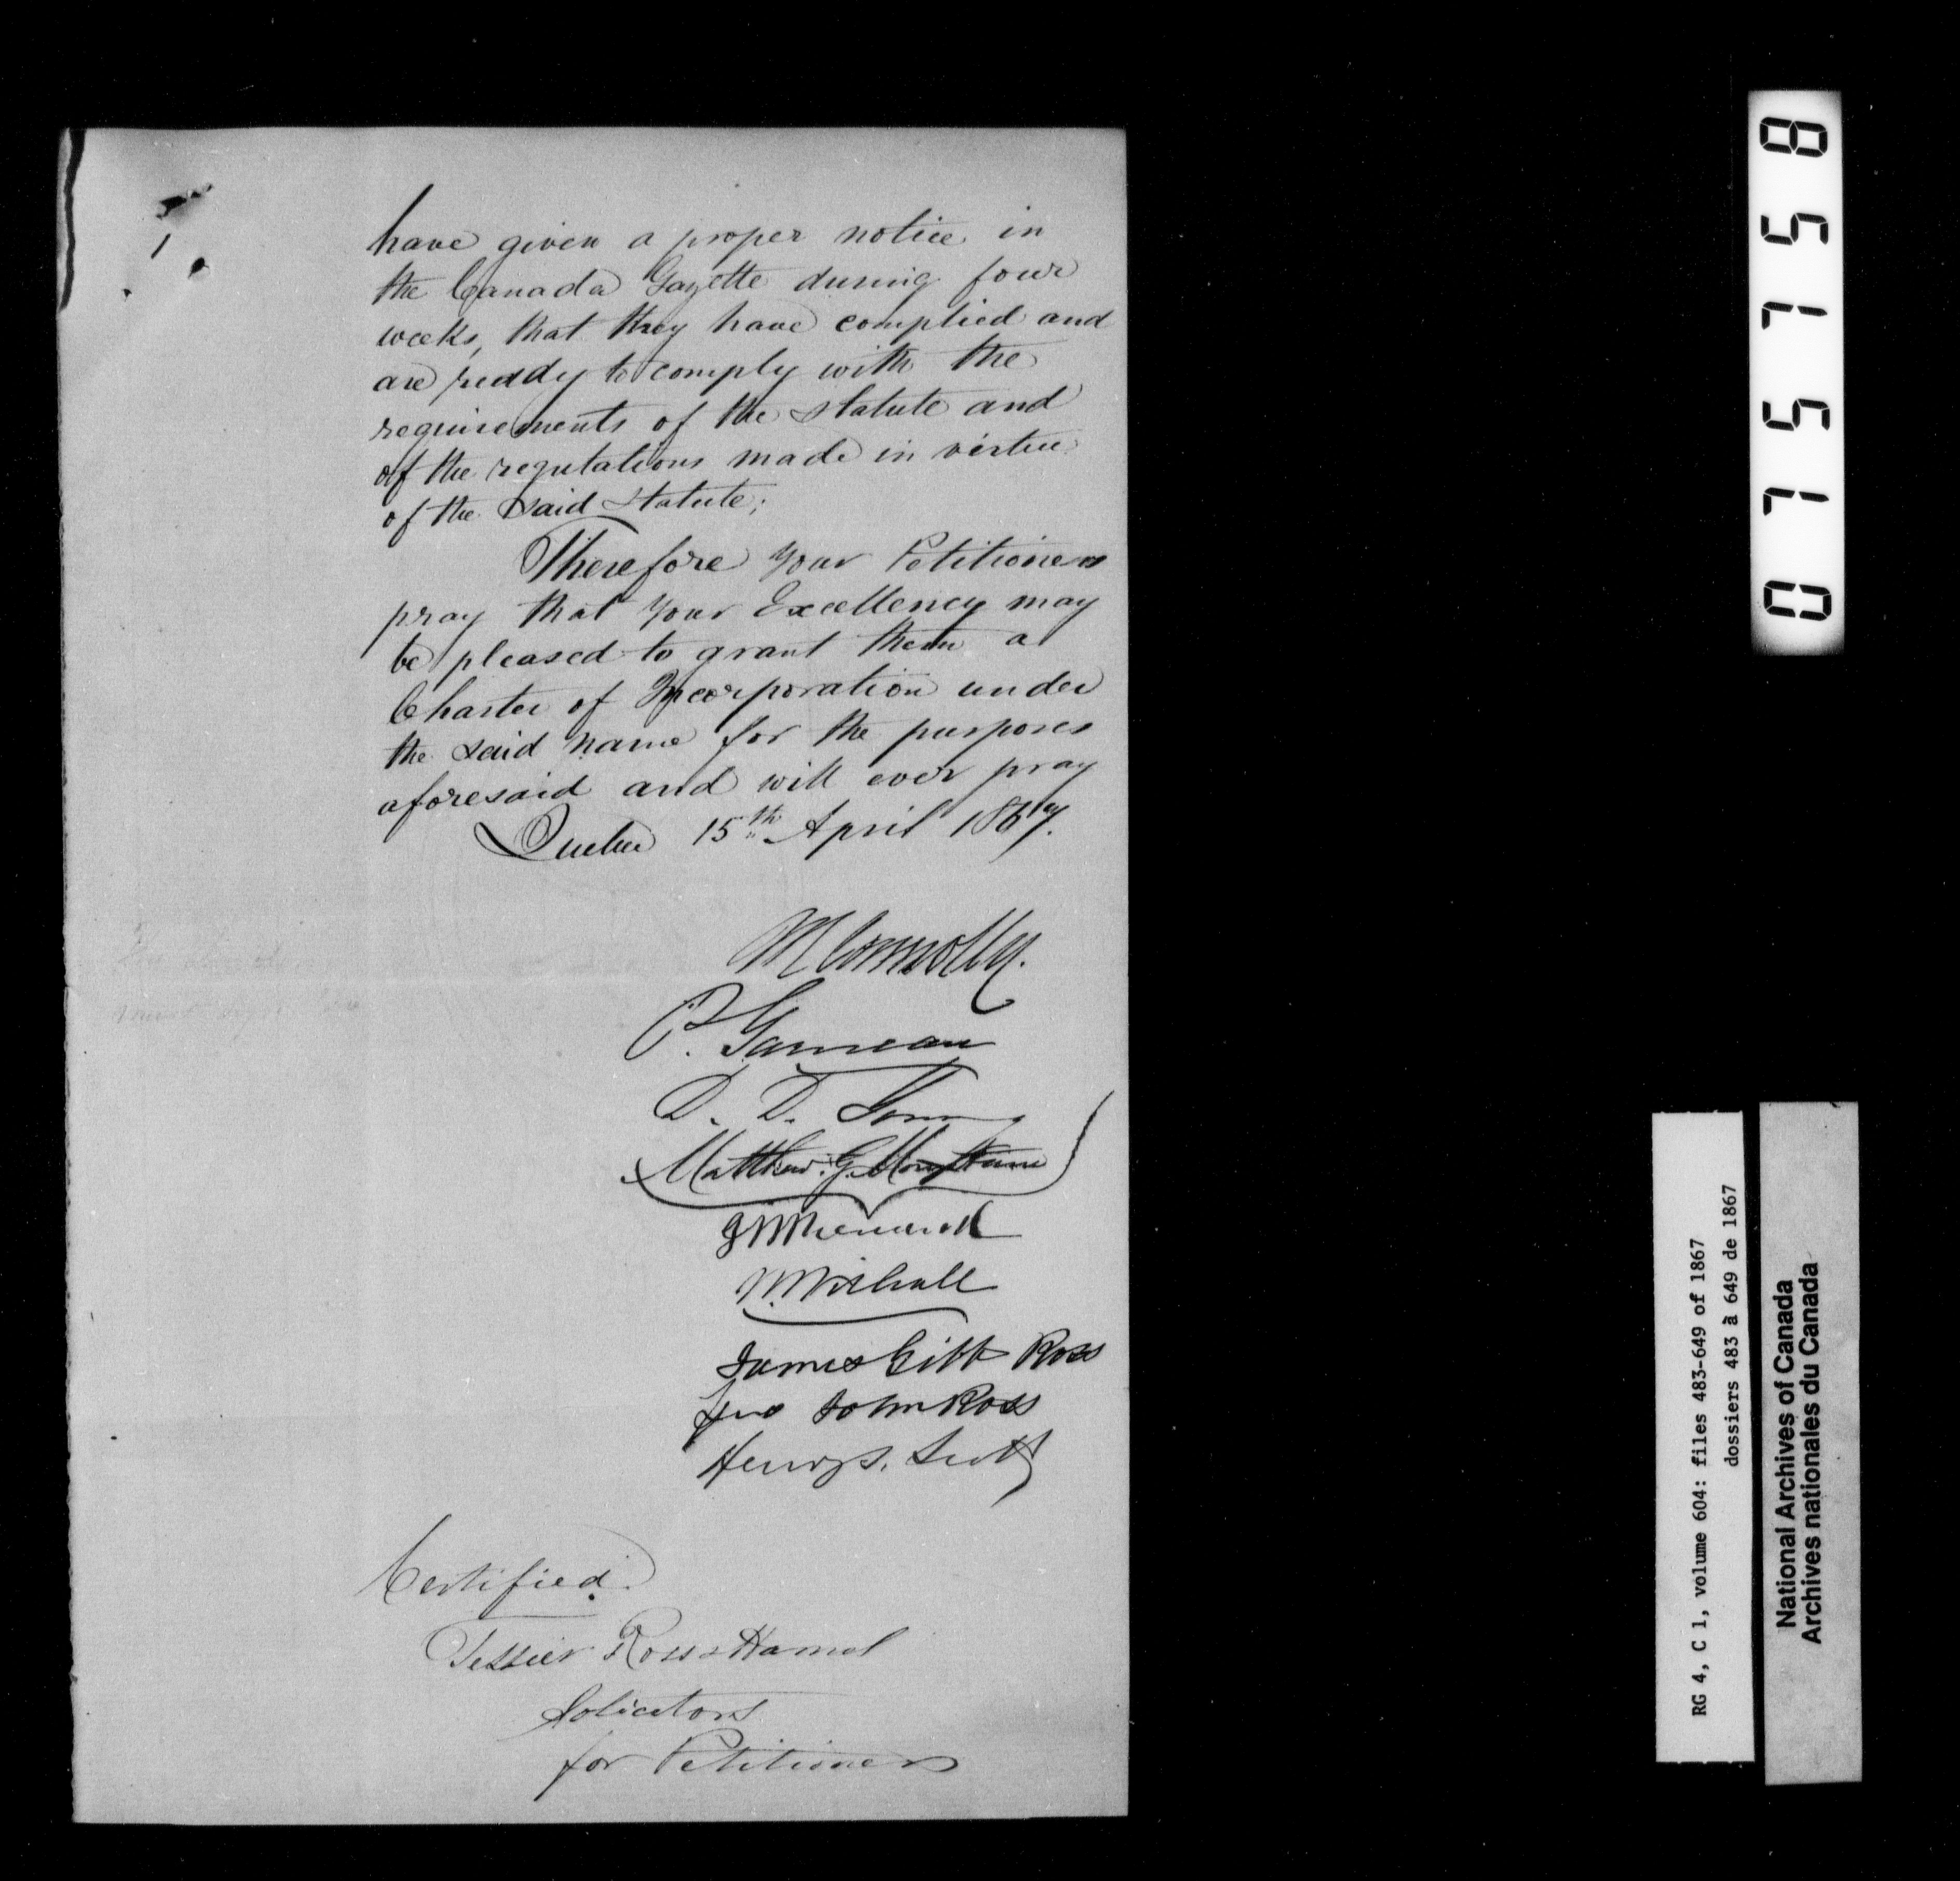 have given a proper notice in
the Canada Gazette during four
weeks, that they have complied and
are ready to comply with the
requirements of the statute and
of the regulations made in virtue
of the said statute;
Therefore your Petitioners
pray that your Excellency may
be pleased to grant them a
Charter of Incorporation under
the said name for the purposes
aforesaid and will ever pray
Quebec 15th April 1867.
M Connolly.
P. Garneau
D. D. Young
Matthew. G. Mountain
W. Withall
James Gibb Ross
John Ross
Henry S. Scott
Certified.
Tessier Ross & Hamel
Solicitors
for Petitioners
0757158
RG 4, C 1, volume 604: files 483-649 of 1867
dossiers 483 à 649 de 1867
National Archives of Canada
Archives nationales du Canada